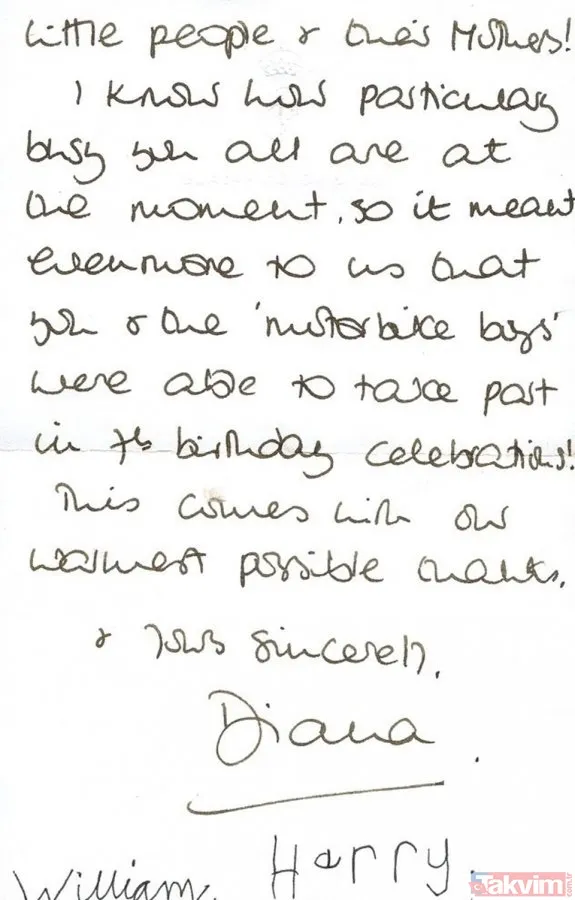 little people & their Mothers!
I know how particulary
busy you all are at
the moment, so it meant
even more to us that
you & the 'motorbike boys'
were able to take part
in 7th birthday celebrations!
This comes with our
warmest possible thanks.
& Yours Sincerely,
Diana.
William. Harry.
Takvim
.com.tr